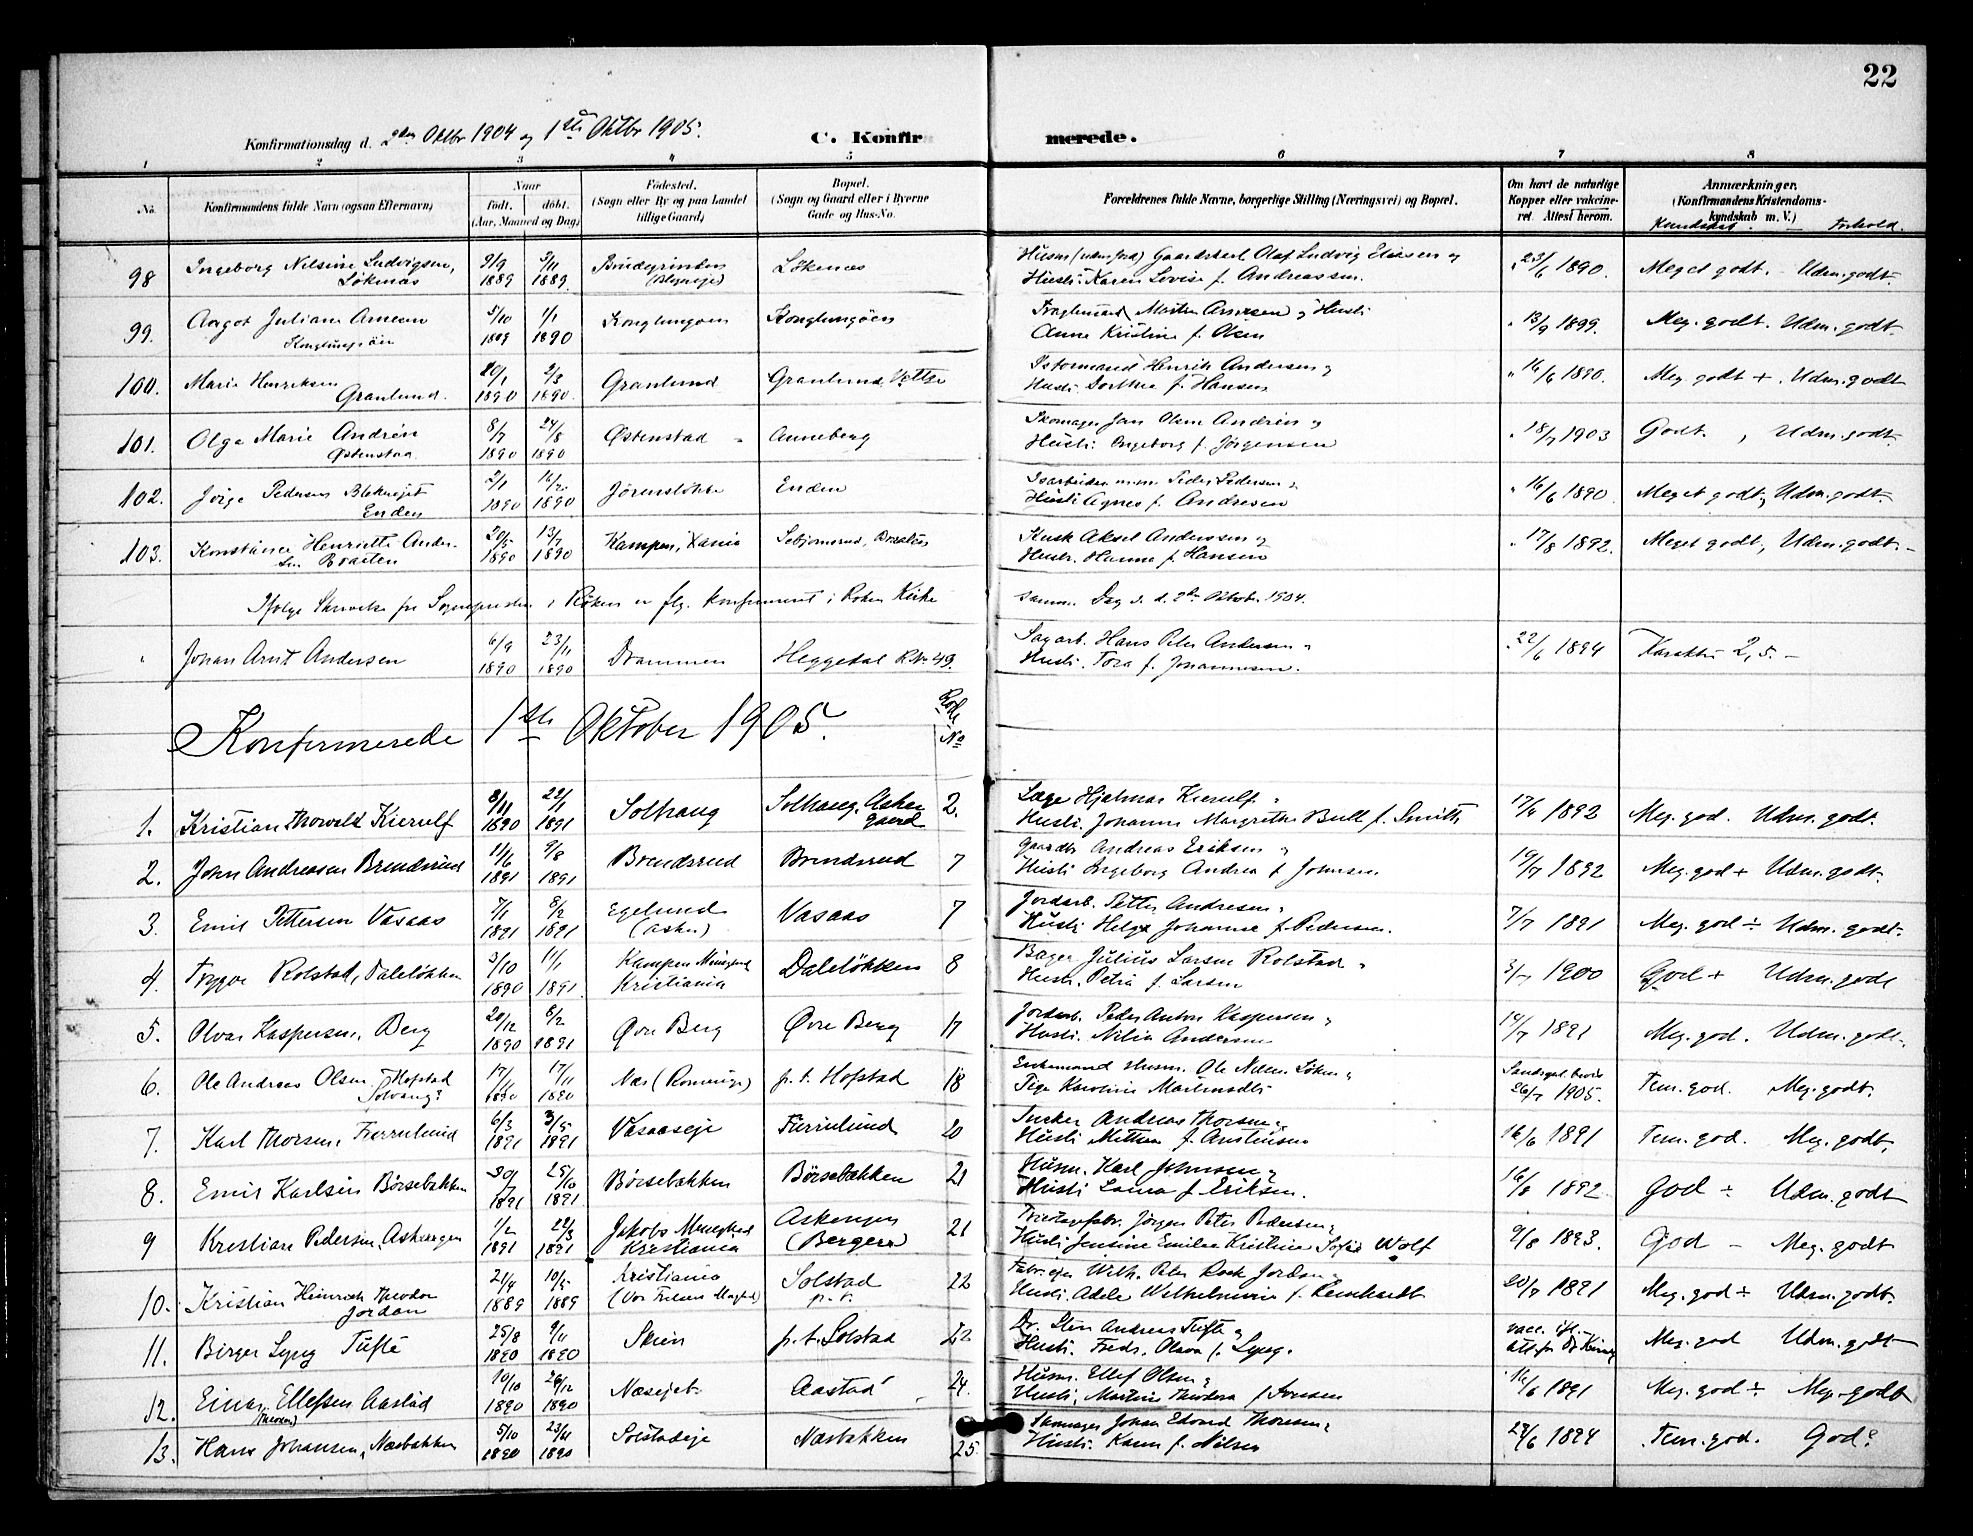 22
Konfirmationsdag d. 2den Oktbr 1904 og 1ste Oktbr 1905.
C. Konfirmerede.
1 2 3 4 5 6 7 8
No.
Konfirmandens fulde Navn (ogsaa Efternavn)
Naar
født. døbt.
(Aar, Maaned og Dag)
Fødested.
(Sogn eller By og paa Landet
tillige Gaard)
Bopæl.
(Sogn og Gaard eller i Byerne
Gade og Hus-No.
Forældrenes fulde Navne, borgerlige Stilling (Næringsvei) og Bopæl.
Om havt de naturlige
Kopper eller vakcine-
ret. Attest herom.
Anmærkninger.
(Konfirmandens Kristendoms-
kundskab m. V.)
Kundskab. — Forhold.
98 Ingeborg Nilsine Ludvigsen, Løkenæs 9/9 1889 3/11 1889 Løkenæs
Gaardskarl Olaf Ludvig og
Hustr. Karen Lovise f. Andreassen. 23/6 1890. Meget godt. – Udm. godt.
99. Aagot Juliane Arnesen 5/10 1889 1/1 1890 Konglungøen Konglungøen
Martin Arnesen og Hustr.
Anne Kristine f. Olsen 13/9 1899. Meg. godt. Udm. godt.
100. Marie Henriksen Granlund. 20/1 1890 2/3 1890. Granlund Granlund, Vettre
Henrik Andersen og
Hustr. Dorthea f. Hansen 16/6 1890. Meg. godt +. Udm. godt
101. Olga Marie Andrén Østenstad 8/7 1890 24/8 1890 Østenstad Anneberg
Skomager Jan Olsen Andrén og
Hustr. Ingeborg f. Jørgensen 18/7 1903 Godt. , Udm. godt.
102. Pedersen Enden 2/1 1890 16/2 1890 Jørensløkke Enden
Peder Pedersen og
Hustr. Agnes f. Andresen 16/6 1890 Meget godt, Udm. godt.
103. Konstance Henriette Andersen Braaten 20/5 1890 13/7 1890 Kampen, Xania Braaten
Kusk Aksel Anderssen og
Hustr. Hanne f. Hansen 17/8 1892. Meget godt, Udm. godt. –
Ifølge Skrivelse fra Sognepresten i Røken er flg. konfirmeret i Røken Kirke samme Dag d. d. 2den Oktob. 1904.
" Johan Arnt Andersen 6/9 1890 23/11 1890 Drammen Heggedal R.No 49.
Sagarb. Hans Peter Andersen og
Hustr. Tora f. Johannesen. 22/6 1894 Karakter 2,5. –
Konfirmerede 1ste Oktober 1905. Rode No
1. Kristian Thorvald Kierulf 8/11 1890 22/1 1891 Solhaug Solhaug, Asker gaard 2.
Læge Hjalmar Kierulf og
Hustr. Johanne Margrethe Bull f. Smith 17/9 1892 Meg. god. Udm. godt.
2. John Andreassen Brendsrud 11/6 1891 9/8 1891 Brendsrud Brendsrud 7
Gaardbr. Andreas Eriksen og
Hustr. Ingeborg Andrea f. Johnsen 19/7 1892 Meg. god + Udm. godt.
3. Emil Pettersen Vasaas 7/1 1891 8/2 1891 Egelund (Asker) Vasaas 7
Jordarb. Petter Andresen og
Hustr. Helga Johanne f. Pedersen. 7/7 1891 Meg. god ÷ Udm. godt.
4. Trygve Rolstad, Daleløkken 3/10 1890 11/1 1891. Kampen Menighed Kristiania Daleløkken 8
Bager Julius Larsen Rolstad og
Hustr. Petra f. Larsen 3/7 1900 God + Udm. godt
5. Olvar Kaspersen, Berg 20/12 1890 8/2 1891 Øvre Berg Øvre Berg 17
Jordarb. Peder Anton Kaspersen og
Hustr. Nilia Andersen 14/7 1891 Meg. god. Udm. godt.
6. Ole Andreas Olsen Hofstad Solvang? 1890 17/11 1890 Næs (Romerige) p.t. Hofstad 18
Enkemand Husm. Ole Nilsen og
Pige Karoline 26/7 1905. Tem. god. Meg. godt.
7. Karl Thorsen, Furrulund 6/3 1891 3/5 1891 Vasaaseje Furrulund 20
Andreas Thorsen og
Hustr. f. 16/6 1891 Tem. god. Meg. godt,
8. Emil Karlsen Børsebakken 30/7 1891 25/10 1891 Børsebakken Børsebakken 21
Husm. Karl Johnsen og
Hustr. Laura f. Eriksen. 16/8 1892 God ÷ Udm. godt
9 Kristian Pedersen, Askerengen 1/2 1891 22/3 1891 Jakobs Menighed Kristiania Askengen (Bergers) 21
Tricotagefabr. Jørgen Peter Pedersen og
Hustr. Jensine Emilie Kristine Sofie Wolf 9/8 1893. God – Meg. godt
10. Kristian Heinrich Theodor Jordan 21/4 1889 10/5 1889 Kristiania (Vor Frelsers Menighed) Solstad p.t. 22
Wilh. Peter Rock Jordan og
Hustr. Adele Wilhelmine f. Reinhardt 20/7 1891 Meg. god ÷ Udm. godt.
11. Birger Lyng Tufte 25/8 1890 9/11 1890 Skien p.t. Solstad 22
Dr. Sten Andreas Tufte og
Hustr. Fredr. Olava f. Lyng. vacc. ifl. att. fra Dr Meg. god Udm. godt
12. Einar (Theodor) Ellefsen Aastad 10/10 1890 26/12 1890 Næsejet Aastad 24.
Husm. Ellef Olsen og
Hustr. Martine Theodora f. 16/6 1891 Meg. god ÷ Meg. godt
13. Hans Johansen, Næsbakken 5/10 1890 23/11 1890 Solstadeje Næsbakken 25.
Skomager Johan Edvard Thoresen og
Hustr. Karen f. Nilsen 27/6 1894 Tem. god. God.